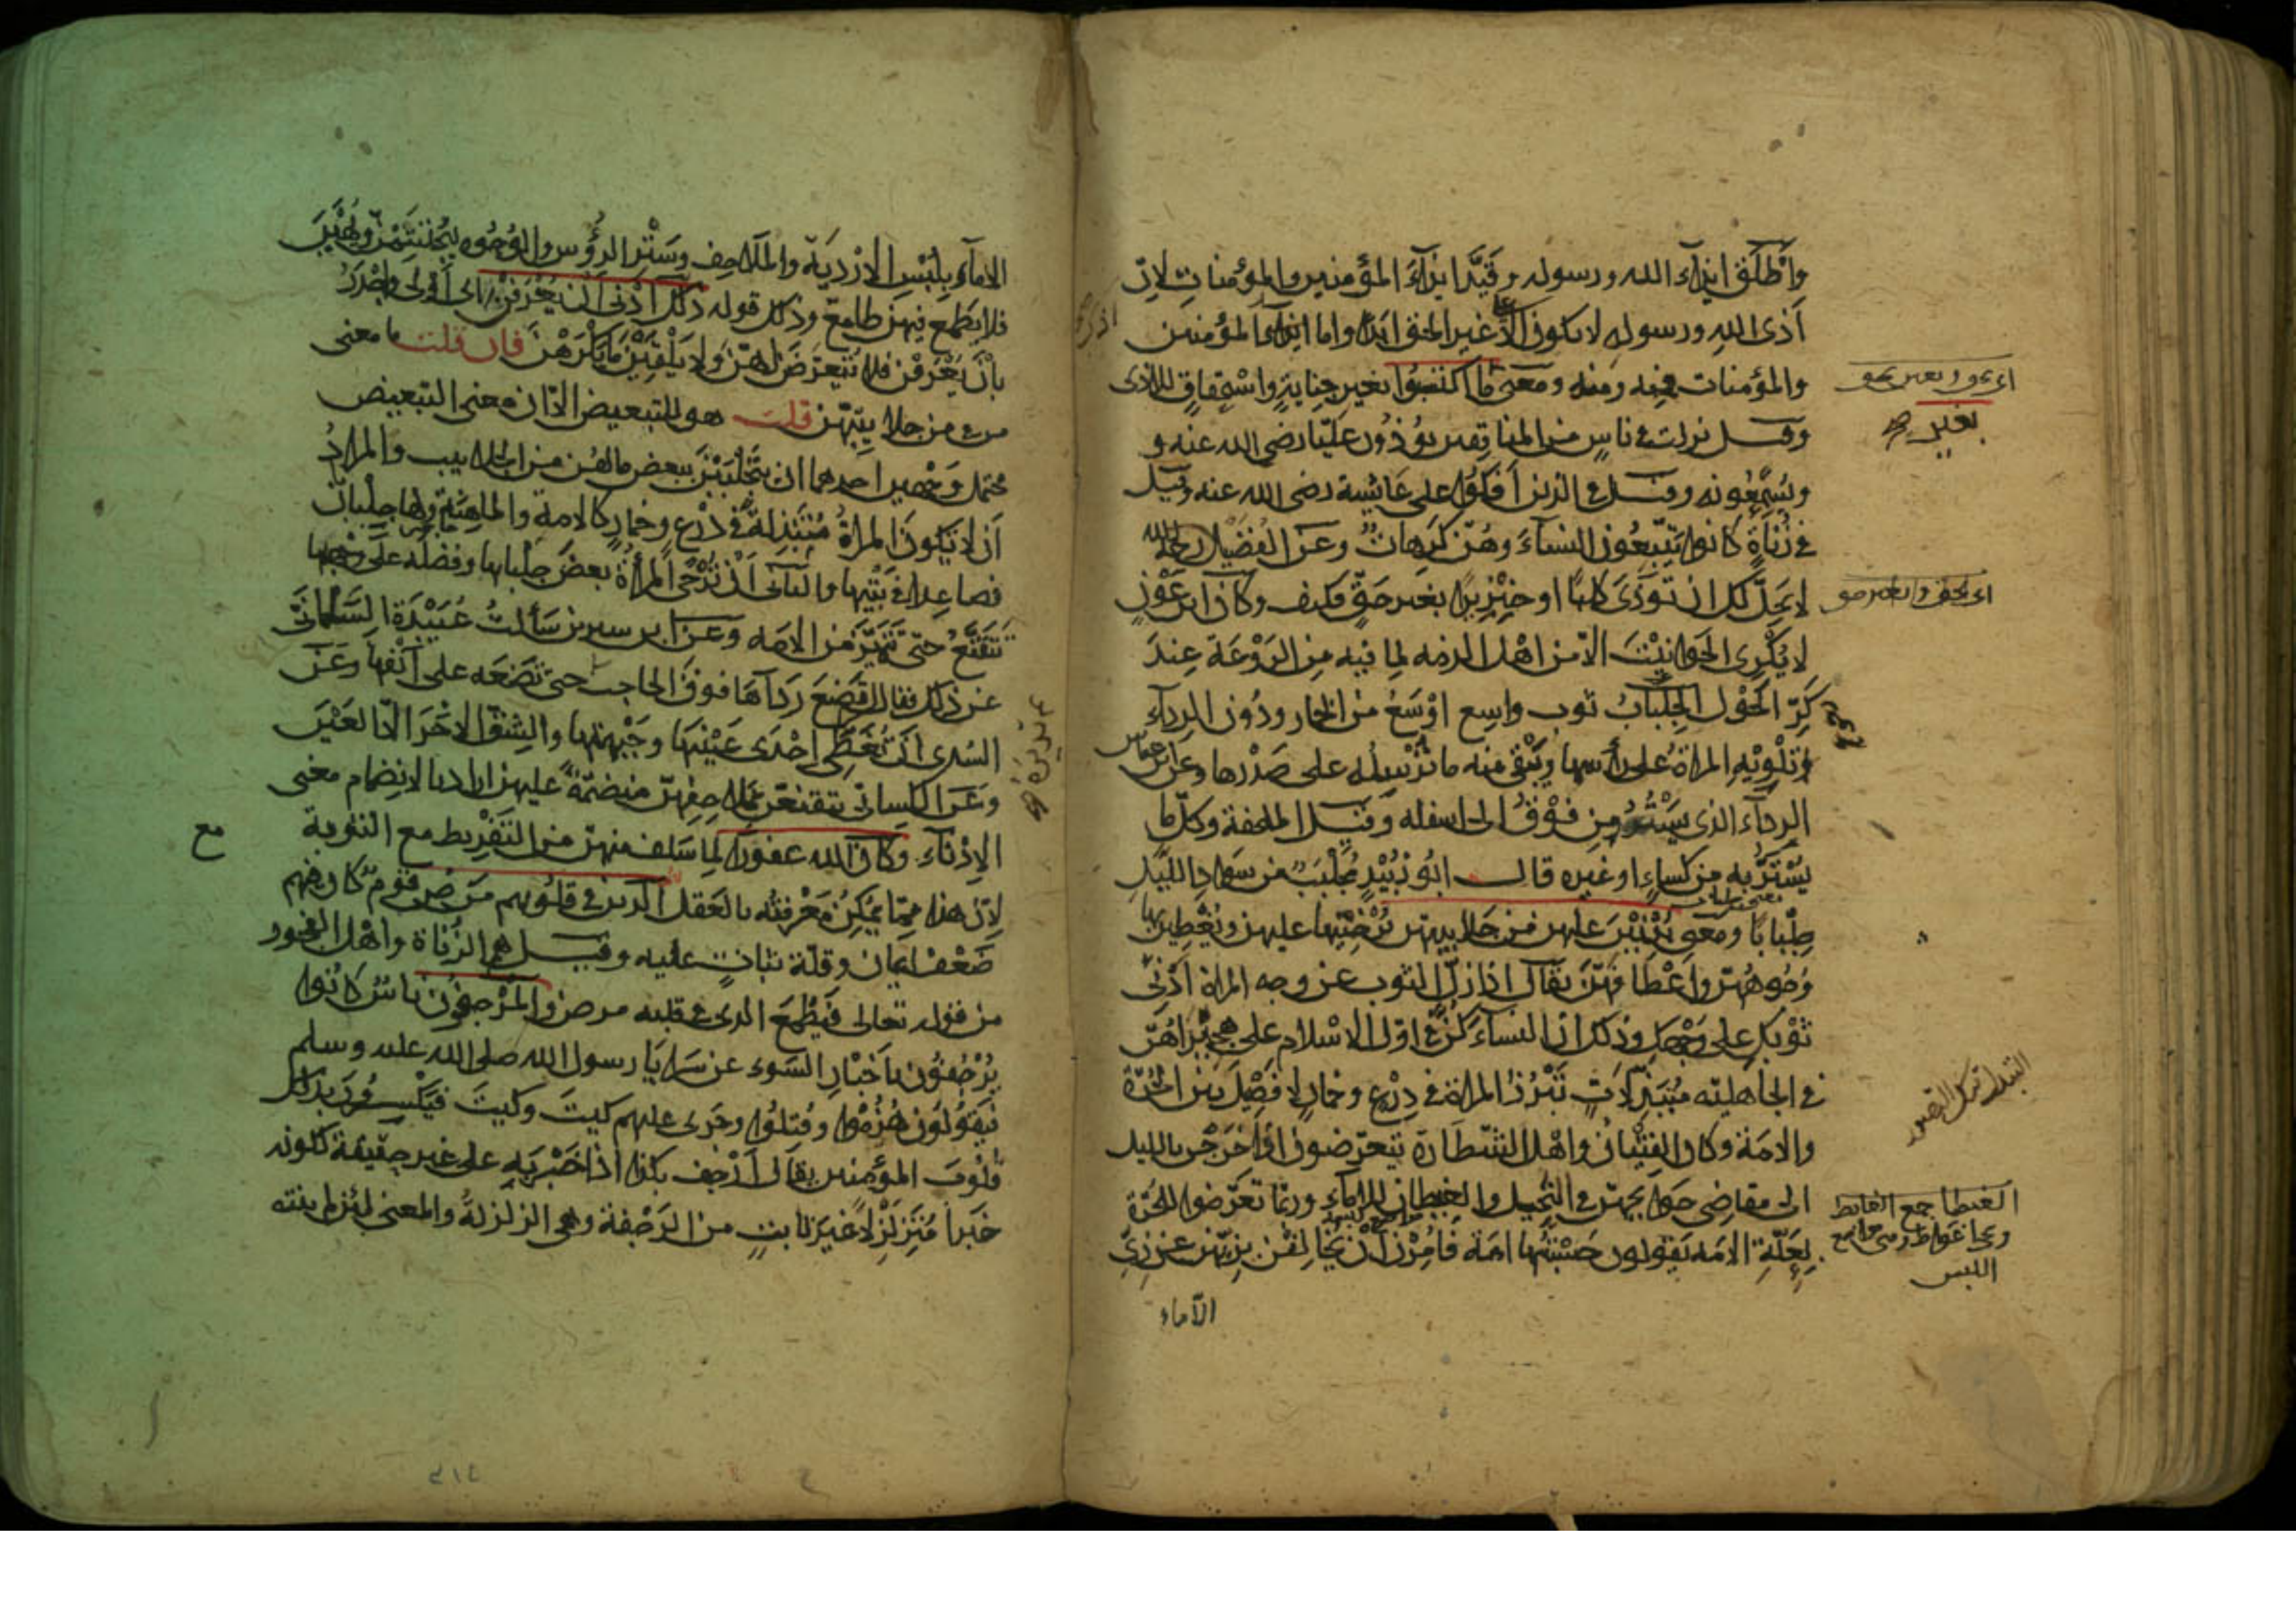 واطلق ايذاء الله ورسوله وقيد ايذاء المؤمنين والمؤمنات لان
اذى الله ورسوله لا يكون الا غير الحق ابدا واما ايذاء المؤمنين
والمؤمنات فمنه ومنه ومعنى ما اكتسبوا بغير جناية واستحقاق للاذى
وقيل نزلت في ناس من المنافقين يؤذون عليا رضي الله عنه و
ويسمعونه وقيل في الذين افكوا على عائشة رضى الله عنه وقيل
في زناة كانوا يتبعون النساء وهن كارهات وعن الفضيل رحمه الله
لا يحل لك ان تؤذى كلبا او خنزيرا بغير حق فكيف وكان ابن عون
لا يكرى الحوانيت الا من اهل الذمه لما فيه من الروعة عند
كر الحول الجلباب ثوب واسع اوسع من الخمار ودون الرداء
تلويه المراة على رأسها ويبقى منه ما ترسله على صدرها وعن ابن عباس
الرداء الذى يستر من فوق الى اسفله وقيل الملحفة وكل ما
يستتر به من كساء او غيره قال ابو زبيد مجلبب من سواد الليل
جلبابا ومعنى يدنين عليهن من جلابيبهن يرخينها عليهن ويغطين بها
وجوههن واعطافهن يقال اذا زل الثوب عن وجه المراة ادنى
ثوبك على وجهك وذلك ان النساء كن في اول الاسلام على هجيراهن
في الجاهلية متبذلات تبرز المراة في درع وخمار لا فصل بين الحرة
والامة وكان الفتيان واهل الشطارة يتعرضون اذا خرجن بالليل
الى مقاضى حوايجهن في النخيل والغيطان للاماء وربما تعرضوا للحرة
بعلة الامه يقولون حسبتها امة فامرن ان يخالفن بزيهن عن زى
الاماء
بغير صح
الغيطان جمع الغائط
اللبس
الاماء بلبس الاردية والملاحف وستر الرؤس والوجوه ليحتشمن ويهبن
فلا يطمع فيهن طامع وذلك قوله ذلك ادنى ان يعرفن اى اولى واجدر
بان يعرفن فلا يتعرض لهن ولا يلقين ما يكرهن فان قلت ما معنى
من في من جلابيبهن قلت هو للتبعيض الا ان معنى التبعيض
محتمل وجهين احدهما ان يتجلببن ببعض ما لهن من الجلابيب والمراد
ان لا تكون المراة متبذلة في درع وخمار كالامة والماهنة ولها جلبابان
فصاعدا في بيتها والثانى ان ترخى المرأة بعض جلبابها وفضله على وجهها
تتقنع حتى تتميز من الامه وعن ابن سيرين سألت عبيدة السلمانى
عن ذلك فقال ان تضع رداءها فوق الحاجب حتى تضعه على انفها وعن
السدى ان تغطى احدى عينيها وجبهتها والشق الاخر الا العين
وعن الكسائى يتقنعن بملاحفهن منضمة عليهن اراد بالانضمام معنى
الادناء وكان الله غفورا لما سلف منهن من التفريط مع التوبة
لان هذا مما يمكن معرفته بالعقل الذين في قلوبهم مرض قوم كان فيهم
ضعف ايمان وقلة ثبات عليه وقيل هم الزناة واهل الفجور
من قوله تعالى فيطمع الذى في قلبه مرض والمرجفون ناس كانوا
يرجفون باخبار السوء عن سرايا رسول الله صلى الله عليه وسلم
فيقولون هزموا وقتلوا وجرى عليهم كيت وكيت فيكسرون بذلك
قلوب المؤمنين يقال ارجف بكذا اذا خبر به على غير حقيقة لكونه
خبرا متزلزلا غير ثابت من الرجفة وهى الزلزلة والمعنى لئن لم ينته
مع